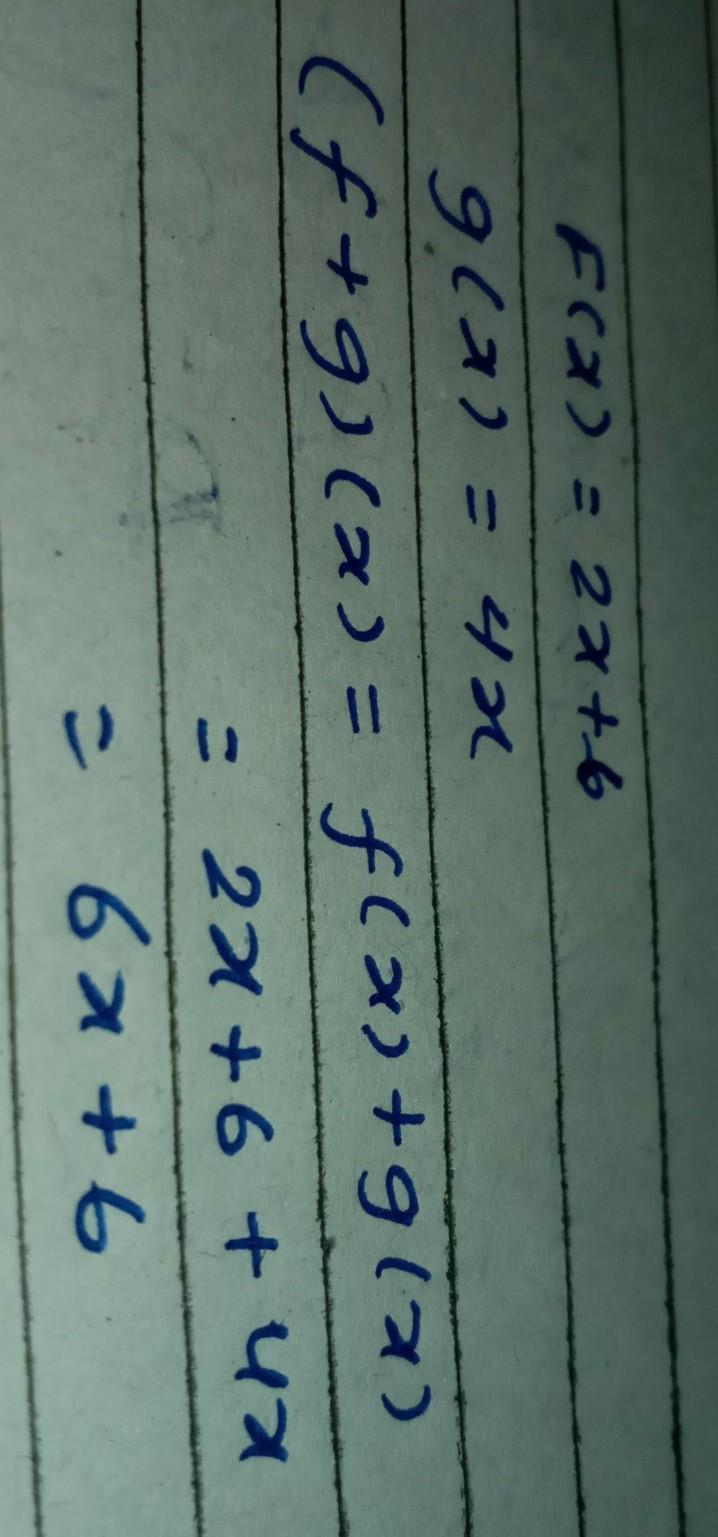 F(x) = 2x+6
g(x) = 4x
(f+g)(x) = f(x)+g(x)
= 2x+6 + 4x
= 6x+6